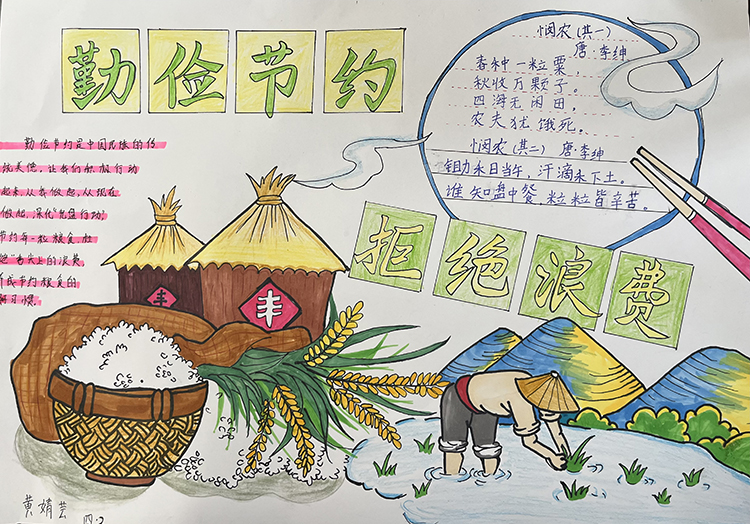 勤俭节约
悯农(其一)
唐·李绅
春种一粒粟,
秋收万颗子。
四海无闲田,
农夫犹饿死。
悯农(其二) 唐·李绅
锄禾日当午,汗滴禾下土。
谁知盘中餐,粒粒皆辛苦。
勤俭节约是中国民族的传
统美德,让我们积极行动
起来,从我做起,从现在
做起,深化"光盘行动,
节约每一粒粮食,杜
绝舌尖上的浪费,
成节约粮食的
习惯。
拒绝浪费
丰
丰
黄婧芸
四.2